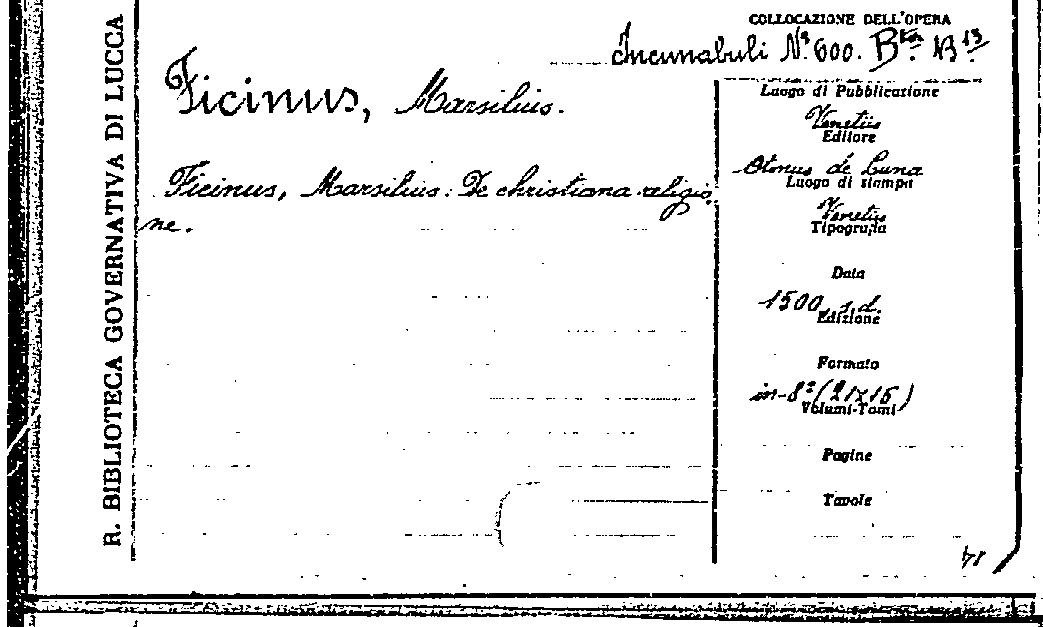 R. BIBLIOTECA GOVERNATIVA DI LUCCA
COLLOCAZIONE DELL'OPERA
Incunabuli Nº. 600. Bta. N.13
Ficinus, Marsilius.
Ficinus, Marsilius: De christiana religio
ne.
Luogo di Pubblicazione
Venetiis
Editore
Otonus de Luna
Luogo di stampa
Venetiis
Tipografia
Data
1500, s.d.
Edizione
Formato
in-8º (21x15)
Volumi-Tomi
Pagine
Tavole